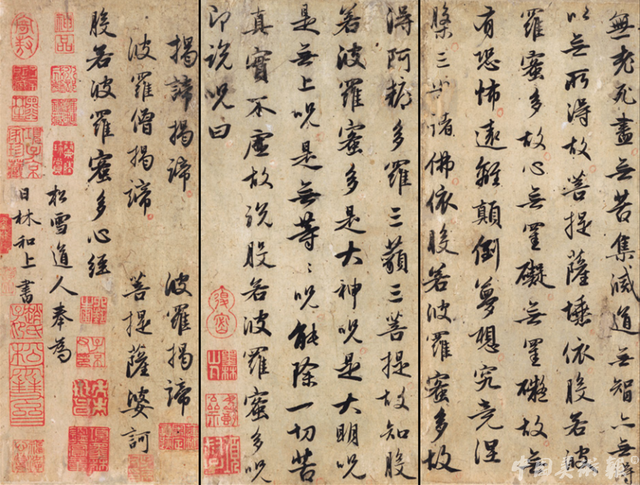 無老死盡無苦集滅道無智亦無得
以無所得故菩提薩埵依般若波
羅蜜多故心無罣礙無罣礙故無
有恐怖遠離顛倒夢想究竟涅
槃三世諸佛依般若波羅蜜多故
得阿耨多羅三藐三菩提故知般
若波羅蜜多是大神呪是大明呪
是無上呪是無等々呪能除一切苦
真實不虛故說般若波羅蜜多呪
即說呪曰
揭諦揭諦 波羅揭諦
波羅僧揭諦 菩提薩婆訶
般若波羅蜜多心經
松雪道人奉為
日林和上書
神品
中国美術報